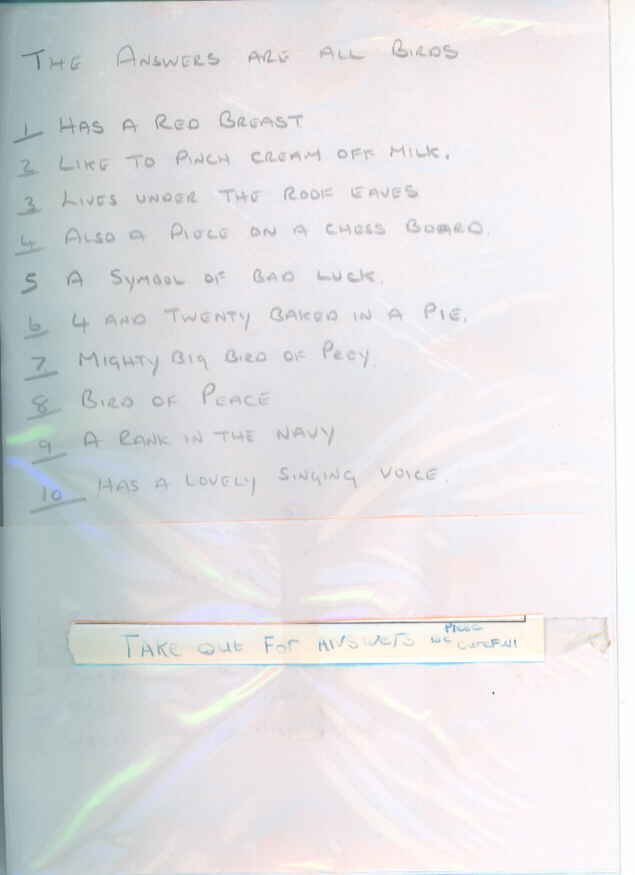 THE ANSWERS ARE ALL BIRDS
1 HAS A RED BREAST
2 LIKE TO PINCH CREAM OFF MILK.
3 LIVES UNDER THE ROOF EAVES
4 ALSO A PIECE ON A CHESS BOARD.
5 A SYMBOL OF BAD LUCK.
6 4 AND TWENTY BAKED IN A PIE.
7 MIGHTY BIG BIRD OF PREY
8 BIRD OF PEACE
9 A RANK IN THE NAVY
10 HAS A LOVELY SINGING VOICE.
TAKE OUT FOR ANSWERS